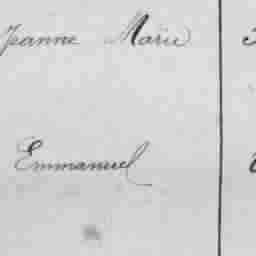 Jeanne Marie
Emmanuel